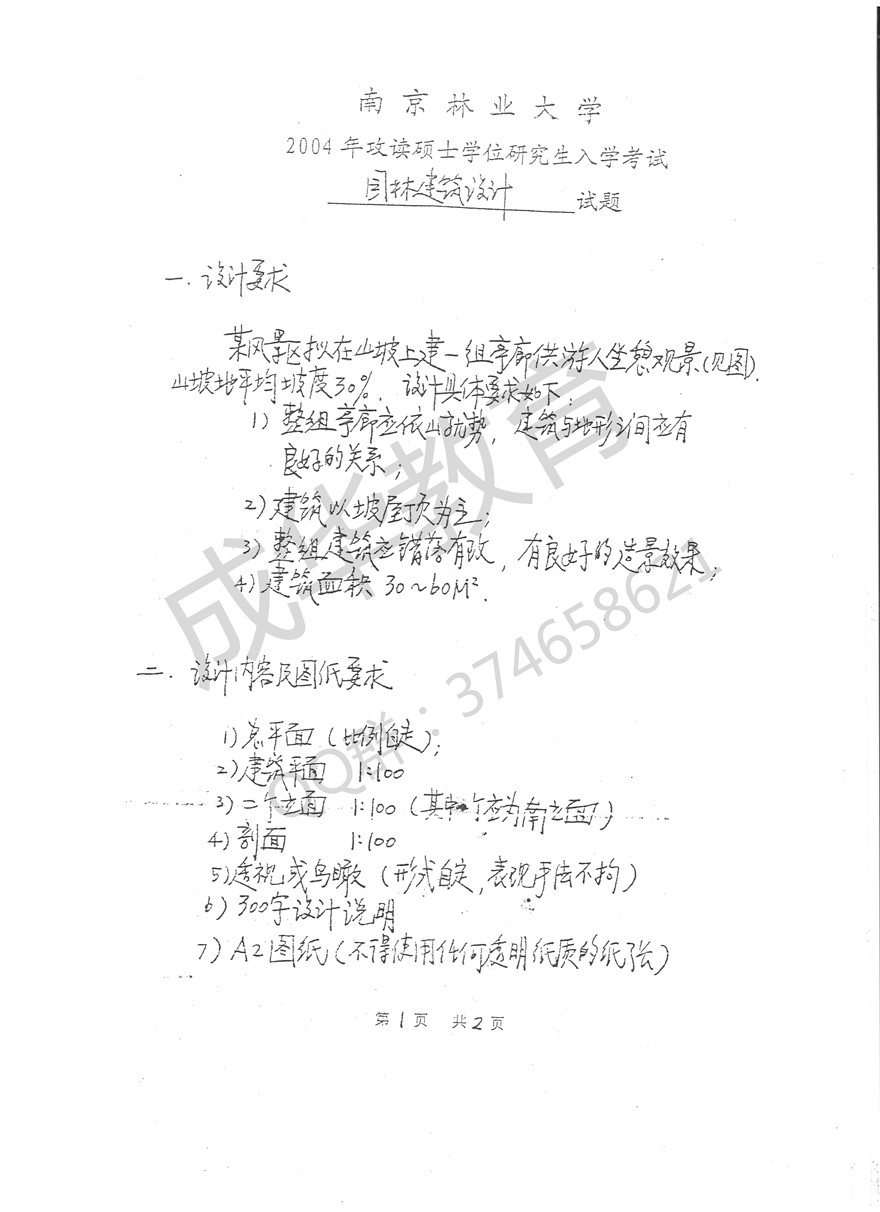 南京林业大学
2004 年攻读硕士学位研究生入学考试
园林建筑设计 试题
一. 设计要求
某风景区拟在山坡上建一组亭廊供游人坐憩观景(见图).
山坡地平均坡度30%. 设计具体要求如下:
1) 整组亭廊应依山就势, 建筑与地形之间应有
良好的关系;
2) 建筑以坡屋顶为主;
3) 整组建筑应错落有致, 有良好的造景效果;
4) 建筑面积 30~60M².
二. 设计内容及图纸要求
1) 总平面 (比例自定);
2) 建筑平面 1:100
3) 二个立面 1:100 (其中一个应为南立面)
4) 剖面 1:100
5) 透视或鸟瞰 (形式自定, 表现手法不拘)
6) 300字设计说明
7) A2图纸 (不得使用任何透明纸质的纸张)
第 1 页 共 2 页
成华教育
QQ群：374658621